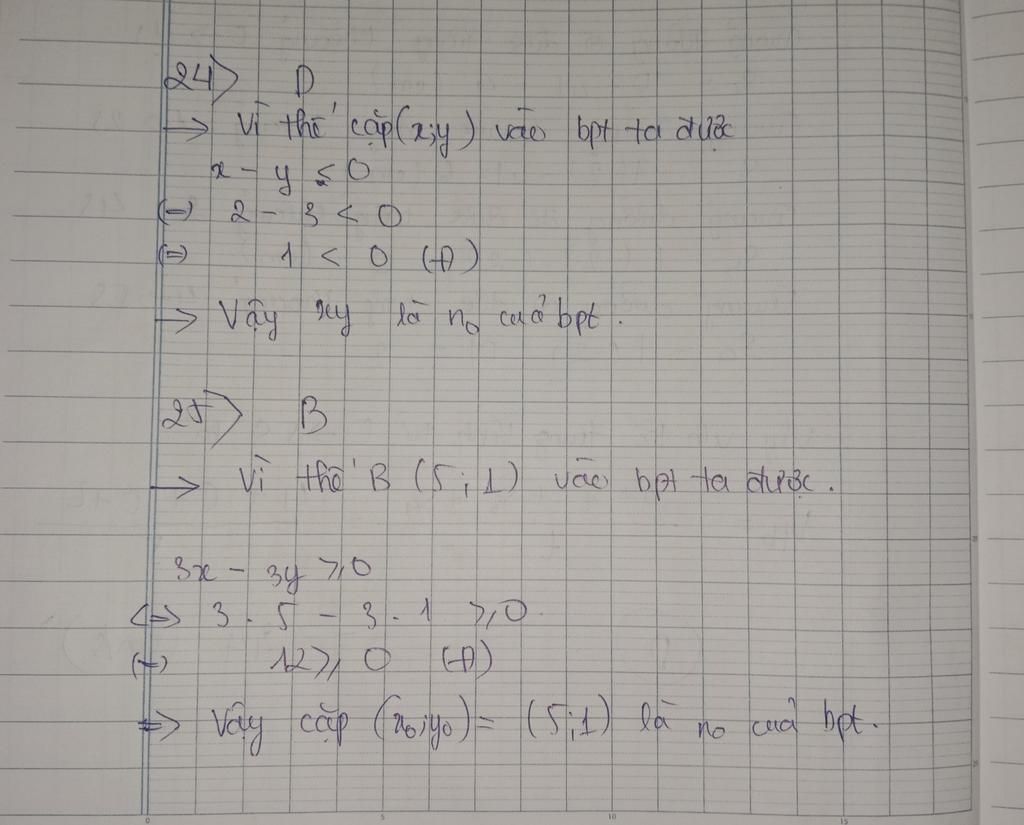 24> D
→ Vì thế cặp (x;y) vào bpt ta được
x - y ≤ 0
(=) 2 - 3 < 0
(=) 1 < 0 (Đ)
→ Vậy xy là n₀ cuả bpt.
25> B
→ Vì thế B (5;1) vào bpt ta được.
3x - 3y ≥ 0
<=> 3 . 5 - 3 . 1 ≥ 0
(=) 12 ≥ 0 (Đ)
=> Vậy cặp (x₀;y₀) = (5;1) là n₀ cuả bpt.
0 5 10 15